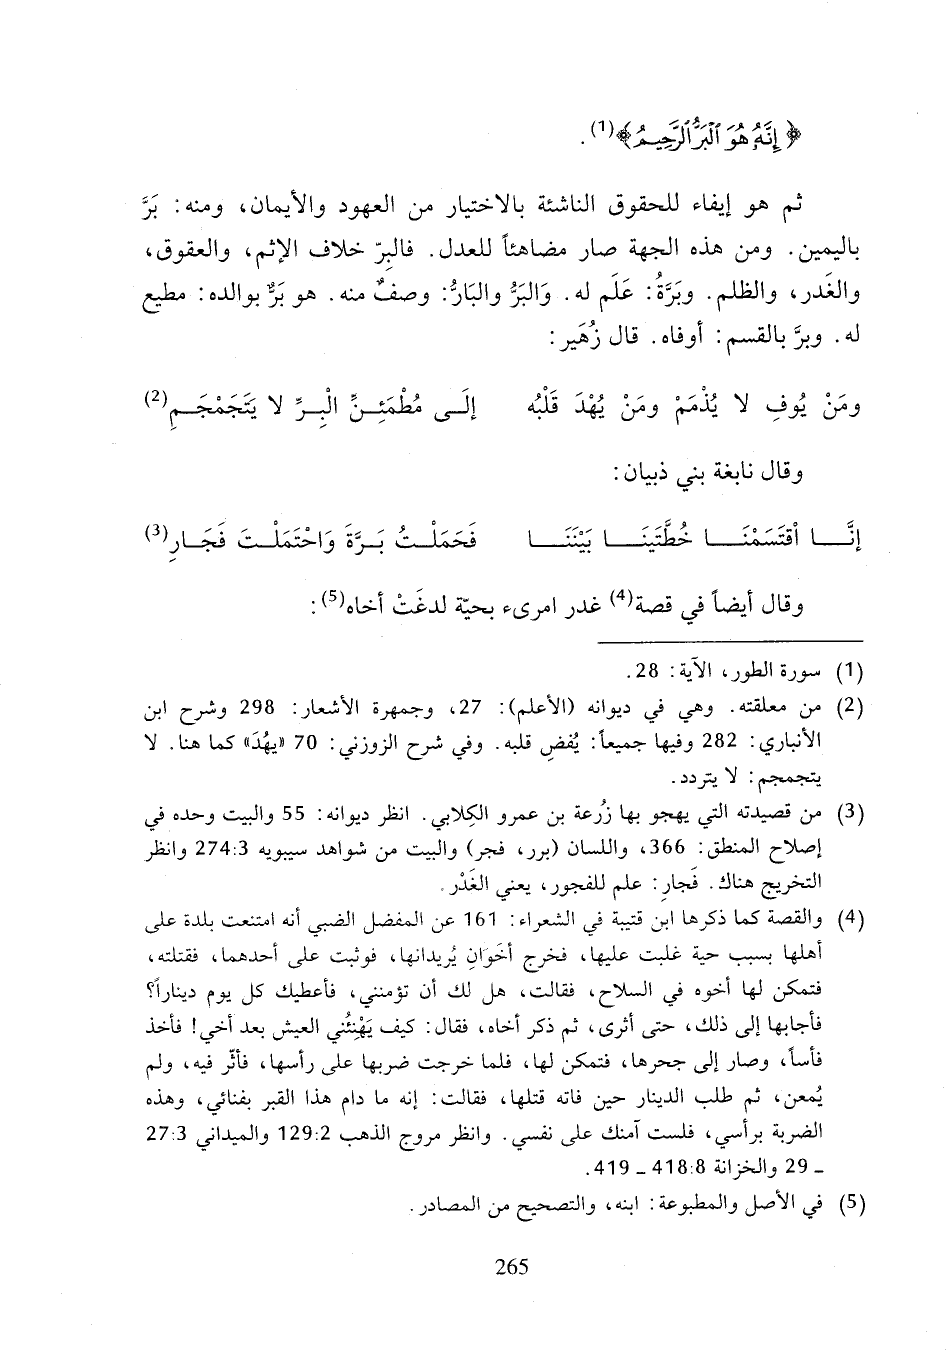 ﴿ إِنَّهُ هُوَ ٱلْبَرُّ ٱلرَّحِيمُ﴾(1).
ثم هو إيفاء للحقوق الناشئة بالاختيار من العهود والأيمان، ومنه: بَرَّ
باليمين. ومن هذه الجهة صار مضاهئاً للعدل. فالبِرّ خلاف الإثم، والعقوق،
والغَدر، والظلم. وبَرَّةُ: عَلَم له. وَالبَرُّ والبَارُّ: وصفٌ منه. هو بَرٌّ بوالده: مطيع
له. وبرَّ بالقسم: أوفاه. قال زُهَير:
ومَنْ يُوفِ لا يُذْمَمْ ومَنْ يُهْدَ قَلْبُه إلَـى مُطْمَئِـنِّ الْبِـرِّ لا يَتَجَمْجَـمِ(2)
وقال نابغة بني ذبيان:
إنَّـــا اْقتَسَمْنَـــا خُطَّتَينَـــا بَيْنَنَـــا فَحَمَلْـتُ بَـرَّةَ وَاحْتَمَلْـتَ فَجَـارِ(3)
وقال أيضاً في قصة(4) غدر امرىء بحيّة لدغَتْ أخاه(5):
(1) سورة الطور، الآية: 28.
(2) من معلقته. وهي في ديوانه (الأعلم): 27، وجمهرة الأشعار: 298 وشرح ابن
الأنباري: 282 وفيها جميعاً: يُفضِ قلبه. وفي شرح الزوزني: 70 «يهُدَ» كما هنا. لا
يتجمجم: لا يتردد.
(3) من قصيدته التي يهجو بها زُرعة بن عمرو الكِلابي. انظر ديوانه: 55 والبيت وحده في
إصلاح المنطق: 366، واللسان (برر، فجر) والبيت من شواهد سيبويه 274:3 وانظر
التخريج هناك. فَجارِ: علم للفجور، يعني الغَدْر.
(4) والقصة كما ذكرها ابن قتيبة في الشعراء: 161 عن المفضل الضبي أنه امتنعت بلدة على
أهلها بسبب حية غلبت عليها، فخرج أخَوَانِ يُريدانها، فوثبت على أحدهما، فقتلته،
فتمكن لها أخوه في السلاح، فقالت، هل لك أن تؤمنني، فأعطيك كل يوم ديناراً؟
فأجابها إلى ذلك، حتى أثرى، ثم ذكر أخاه، فقال: كيف يَهْنِئُني العيش بعد أخي! فأخذ
فأساً، وصار إلى جحرها، فتمكن لها، فلما خرجت ضربها على رأسها، فأثّر فيه، ولم
يُمعن، ثم طلب الدينار حين فاته قتلها، فقالت: إنه ما دام هذا القبر بفنائي، وهذه
الضربة برأسي، فلست آمنك على نفسي. وانظر مروج الذهب 129:2 والميداني 27:3
ـ 29 والخزانة 418:8 ـ 419.
(5) في الأصل والمطبوعة: ابنه، والتصحيح من المصادر.
265